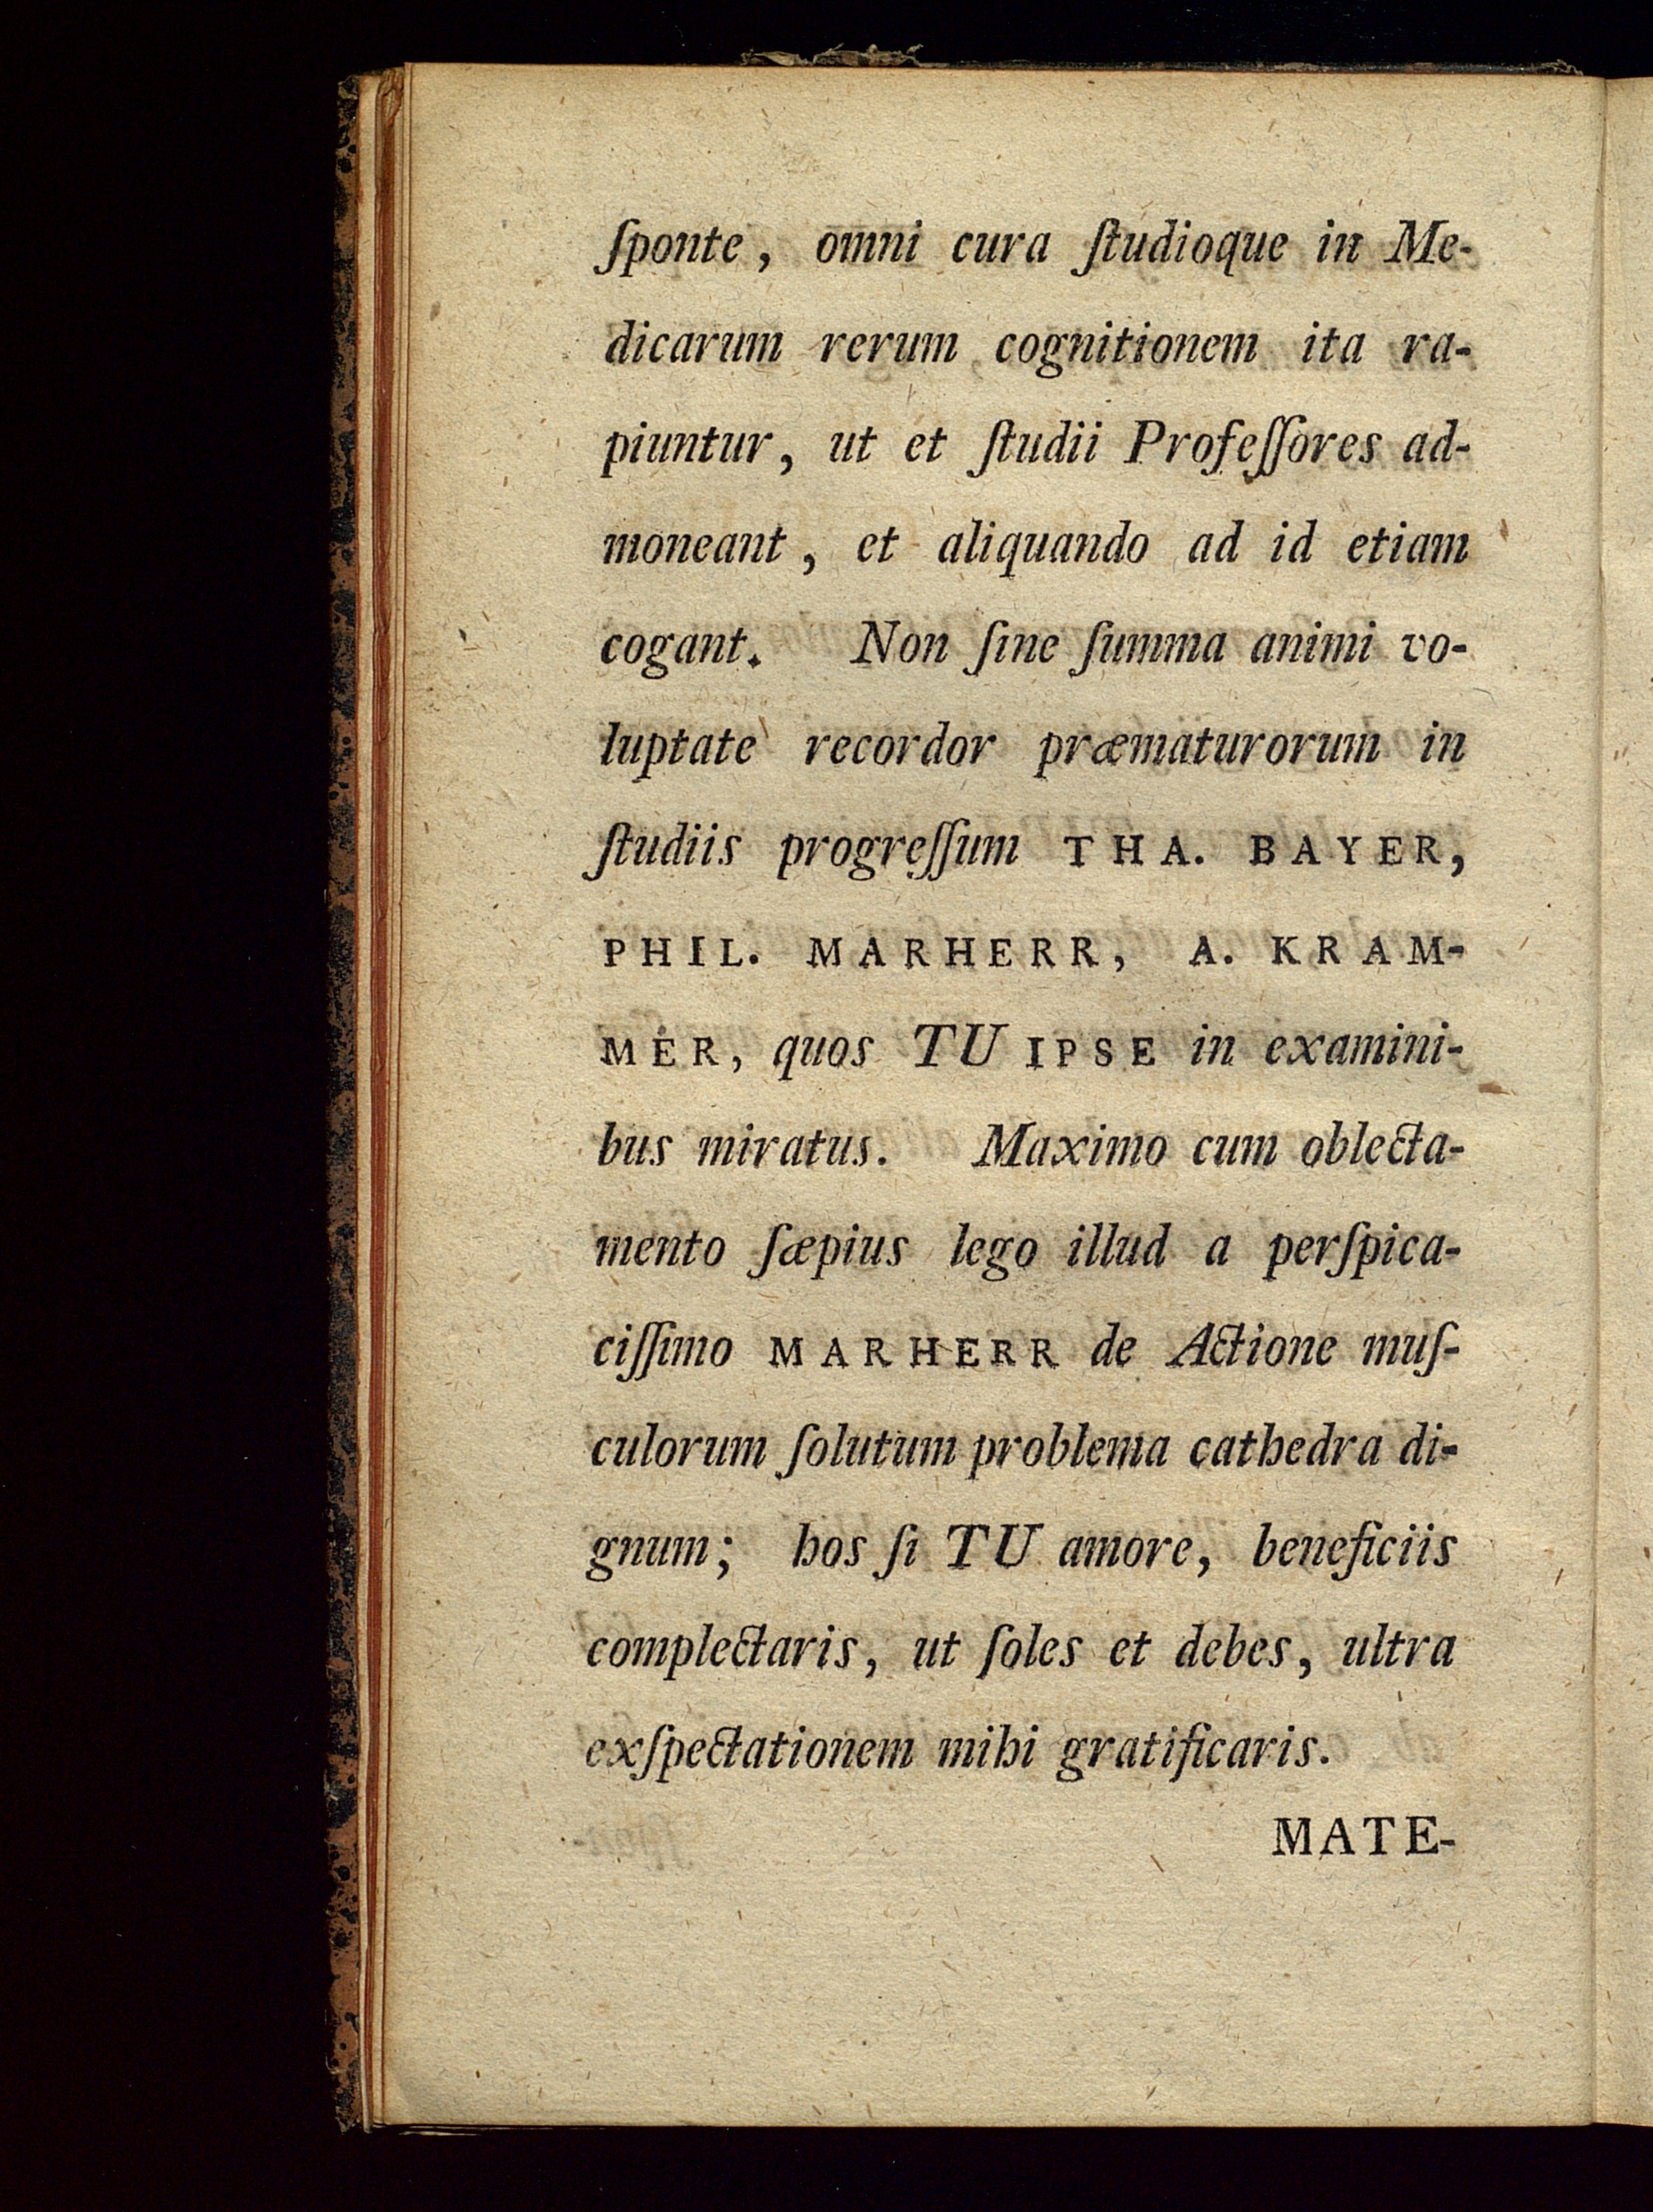 ſponte, omni cura ſtudioque in Me-
dicarum rerum cognitionem ita ra-
piuntur, ut et ſtudii Profeſſores ad-
moneant, et aliquando ad id etiam
cogant. Non ſine ſumma animi vo-
luptate recordor præmaturorum in
ſtudiis progreſſum THA. BAYER,
PHIL. MARHERR, A. KRAM-
MER, quos TU IPSE in examini-
bus miratus. Maximo cum oblecta-
mento ſæpius lego illud a perſpica-
ciſſimo MARHERR de Actione muſ-
culorum ſolutum problema cathedra di-
gnum; hos ſi TU amore, beneficiis
complectaris, ut ſoles et debes, ultra
exſpectationem mihi gratificaris.
MATE-